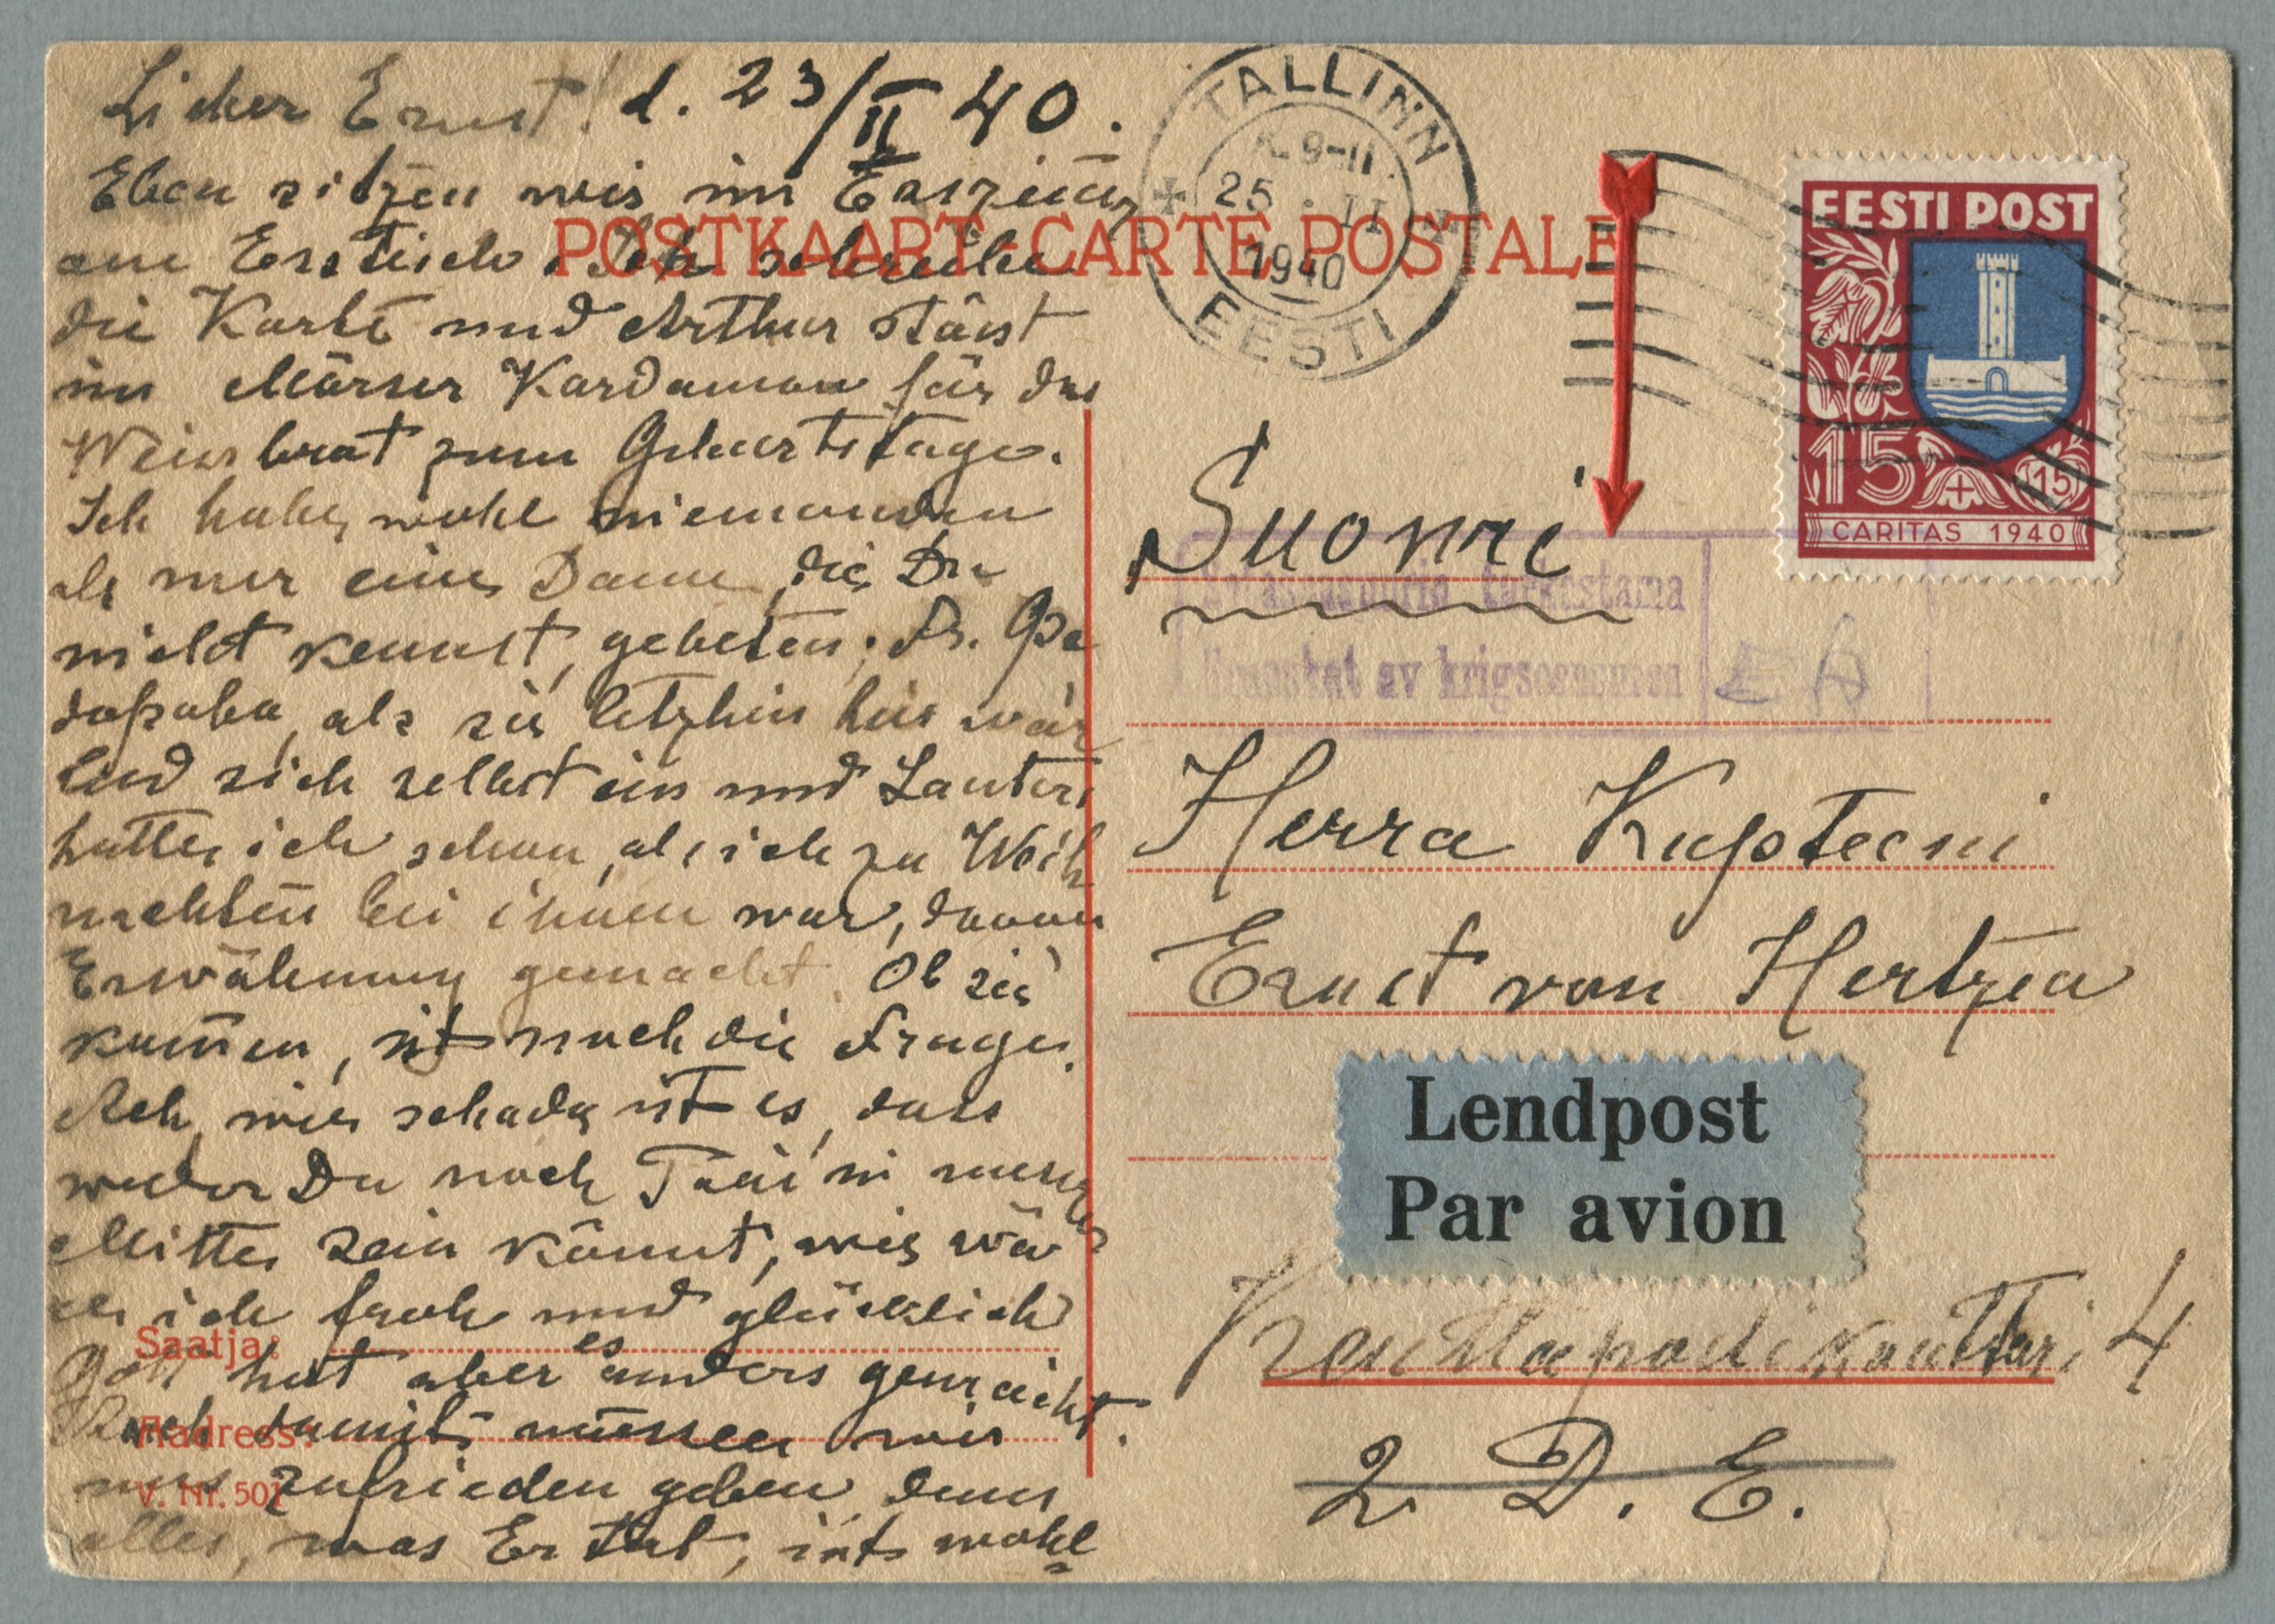 Lieber Ernst! d. 23/II 40.
Eben sitzen wir im Esszim̄er
am Esstisch. Ich schreibe
die Karte und Arthur stösst
im Mörser Kardamon für das
Weissbrot zum Geburtstage.
Ich habe wohl niemanden
als nur eine Dame, die Du
nicht kennst, gebeten; Fr.
als sie letzthin hier war
lud sich selbst ein und
hatte ich schon, als ich zu Weih
nachten bei ihnen war, davon
Erwähnung gemacht. Ob sie
kom̄en, ist noch die Frage.
Ach, wie schade ist es, dass
weder Du noch in unsrer
Mitte sein könnt, wie wä
re ich froh und glücklich
Gott hat aber es anders gemacht.
Auch damit müssen wir
uns zufrieden geben denn
alles, was Er tut, ist wohl
POSTKAART-CARTE POSTALE
Saatja:
Aadress:
V. Nr. 501
TALLINN
K. 9-11
25. II
1940
EESTI
EESTI POST
15
15
CARITAS 1940
Suomi
tarkastama
Granskat av krigscensuren
EA
Herra Kapteeni
Ernst von Hertzen
Lendpost
Par avion
Kenttäpostikonttori 4
2. D. E.